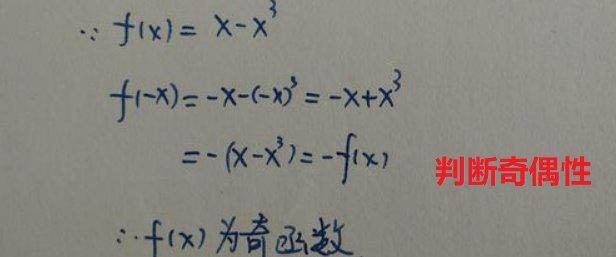 ∵ f(x) = x-x³
f(-x) = -x-(-x)³ = -x+x³
= -(x-x³) = -f(x)
判断奇偶性
∴ f(x) 为奇函数